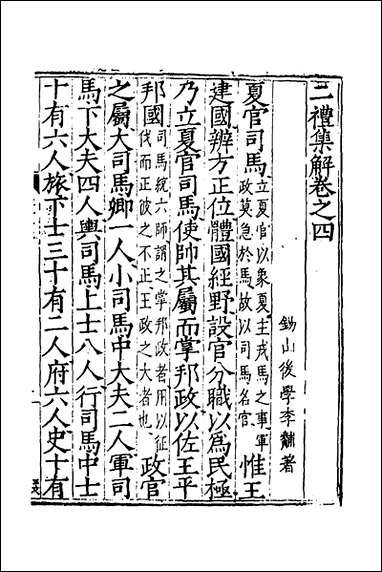 二禮集解卷之四
錫山後學李黼著
夏官司馬立夏官以象夏主戎馬之事軍政莫急於馬故以司馬名官惟王
建國辨方正位體國經野設官分職以爲民極
乃立夏官司馬使帥其屬而掌邦政以佐王平
邦國司馬統六師謂之掌邦政者用以征伐而正彼之不正王政之大者也政官
之屬大司馬卿一人小司馬中大夫二人軍司
馬下大夫四人輿司馬上士八人行司馬中士
十有六人旅下士三十有二人府六人史十有